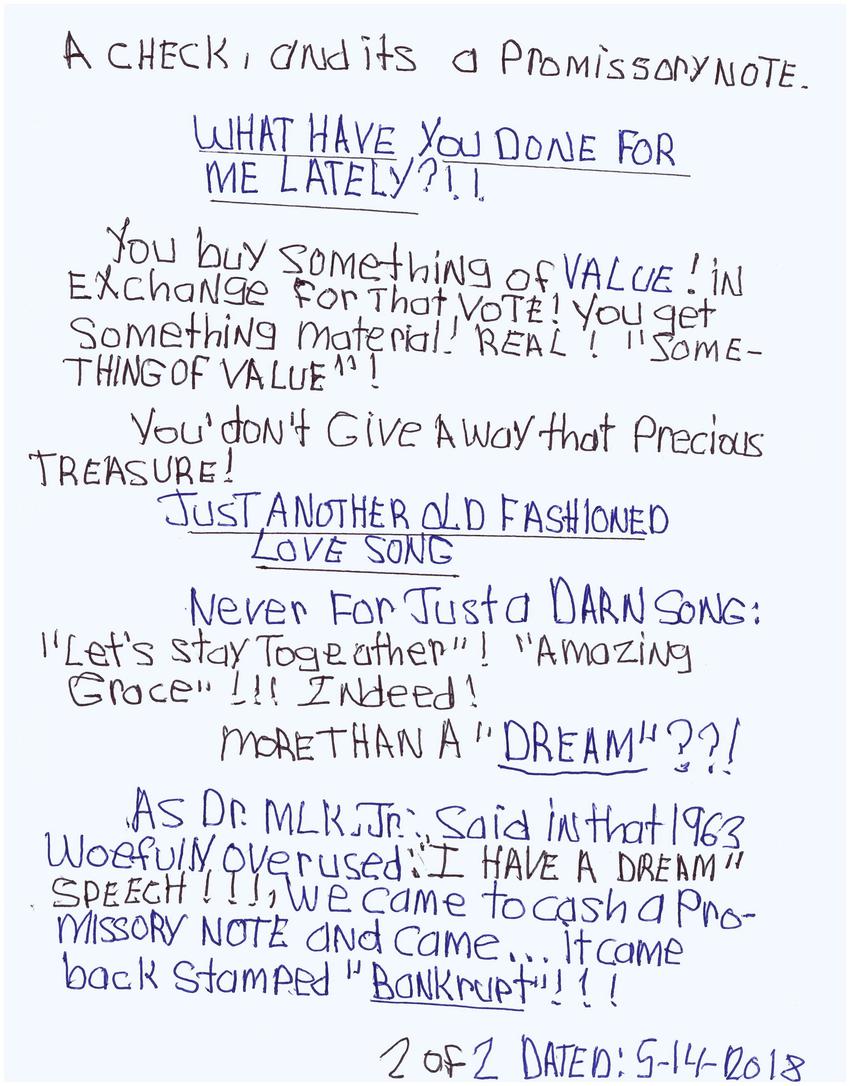 A CHECK, and its a PromissoryNOTE.
WHAT HAVE YOU DONE FOR
ME LATELY?!!
You buy something of VALUE! iN
EXchaNge For That VOTE! You get
Something material! REAL! "SOME-
THING OF VALUE"!
You' don't Give Away that Precious
TREASURE!
JUST ANOTHER OLD FASHIONED
LOVE SONG
Never For Just a DARN SONG:
"Let's stay Togeather"! "Amazing
Grace" !!! INdeed!
MORE THAN A "DREAM"??!
As Dr. MLK, Jr., Said in that 1963
WoefulN overused: "I HAVE A DREAM"
SPEECH!!!, We came to cash a Pro-
MISSORY NOTE and came... it came
back Stamped "Bankrupt"!!!
2 of 2 DATED: 5-14-2018